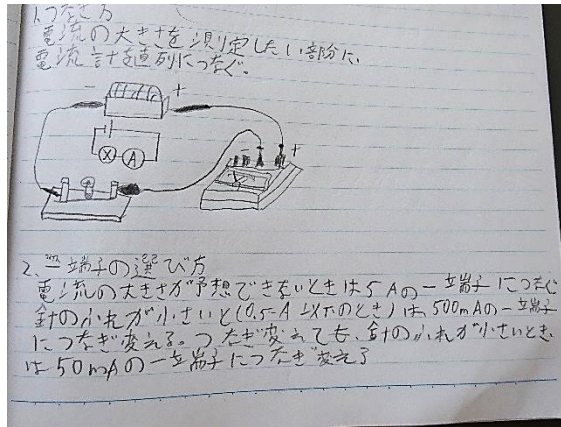 1.つなぎ方
電流の大きさを測定したい部分に、
電流計を直列につなぐ。
- +
X A
- +
2. 一端子の選び方
電流の大きさが予想できないときは5Aの一端子につなぐ
針のふれが小さいと(0.5A以下のとき)は500mAの一端子
につなぎ変える。つなぎ変えても、針のふれが小さいとき
は50mAの一端子につなぎ変える